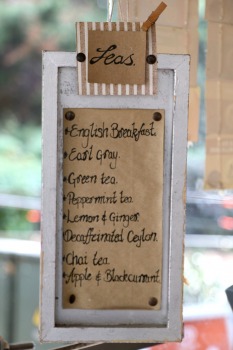 Teas.
• English Breakfast.
• Earl Gray.
• Green tea.
• Peppermint tea.
• Lemon & Ginger
• Decaffeinated Ceylon.
• Chai tea.
• Apple & Blackcurrant